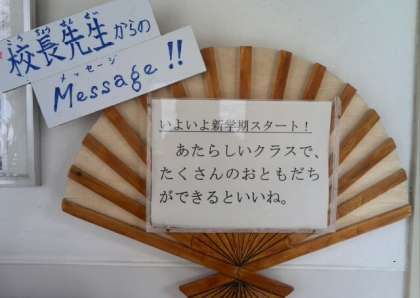 こうちょうせんせい
校長先生からの
メッセージ
Message!!
いよいよ新学期スタート！
　あたらしいクラスで、
たくさんのおともだち
ができるといいね。